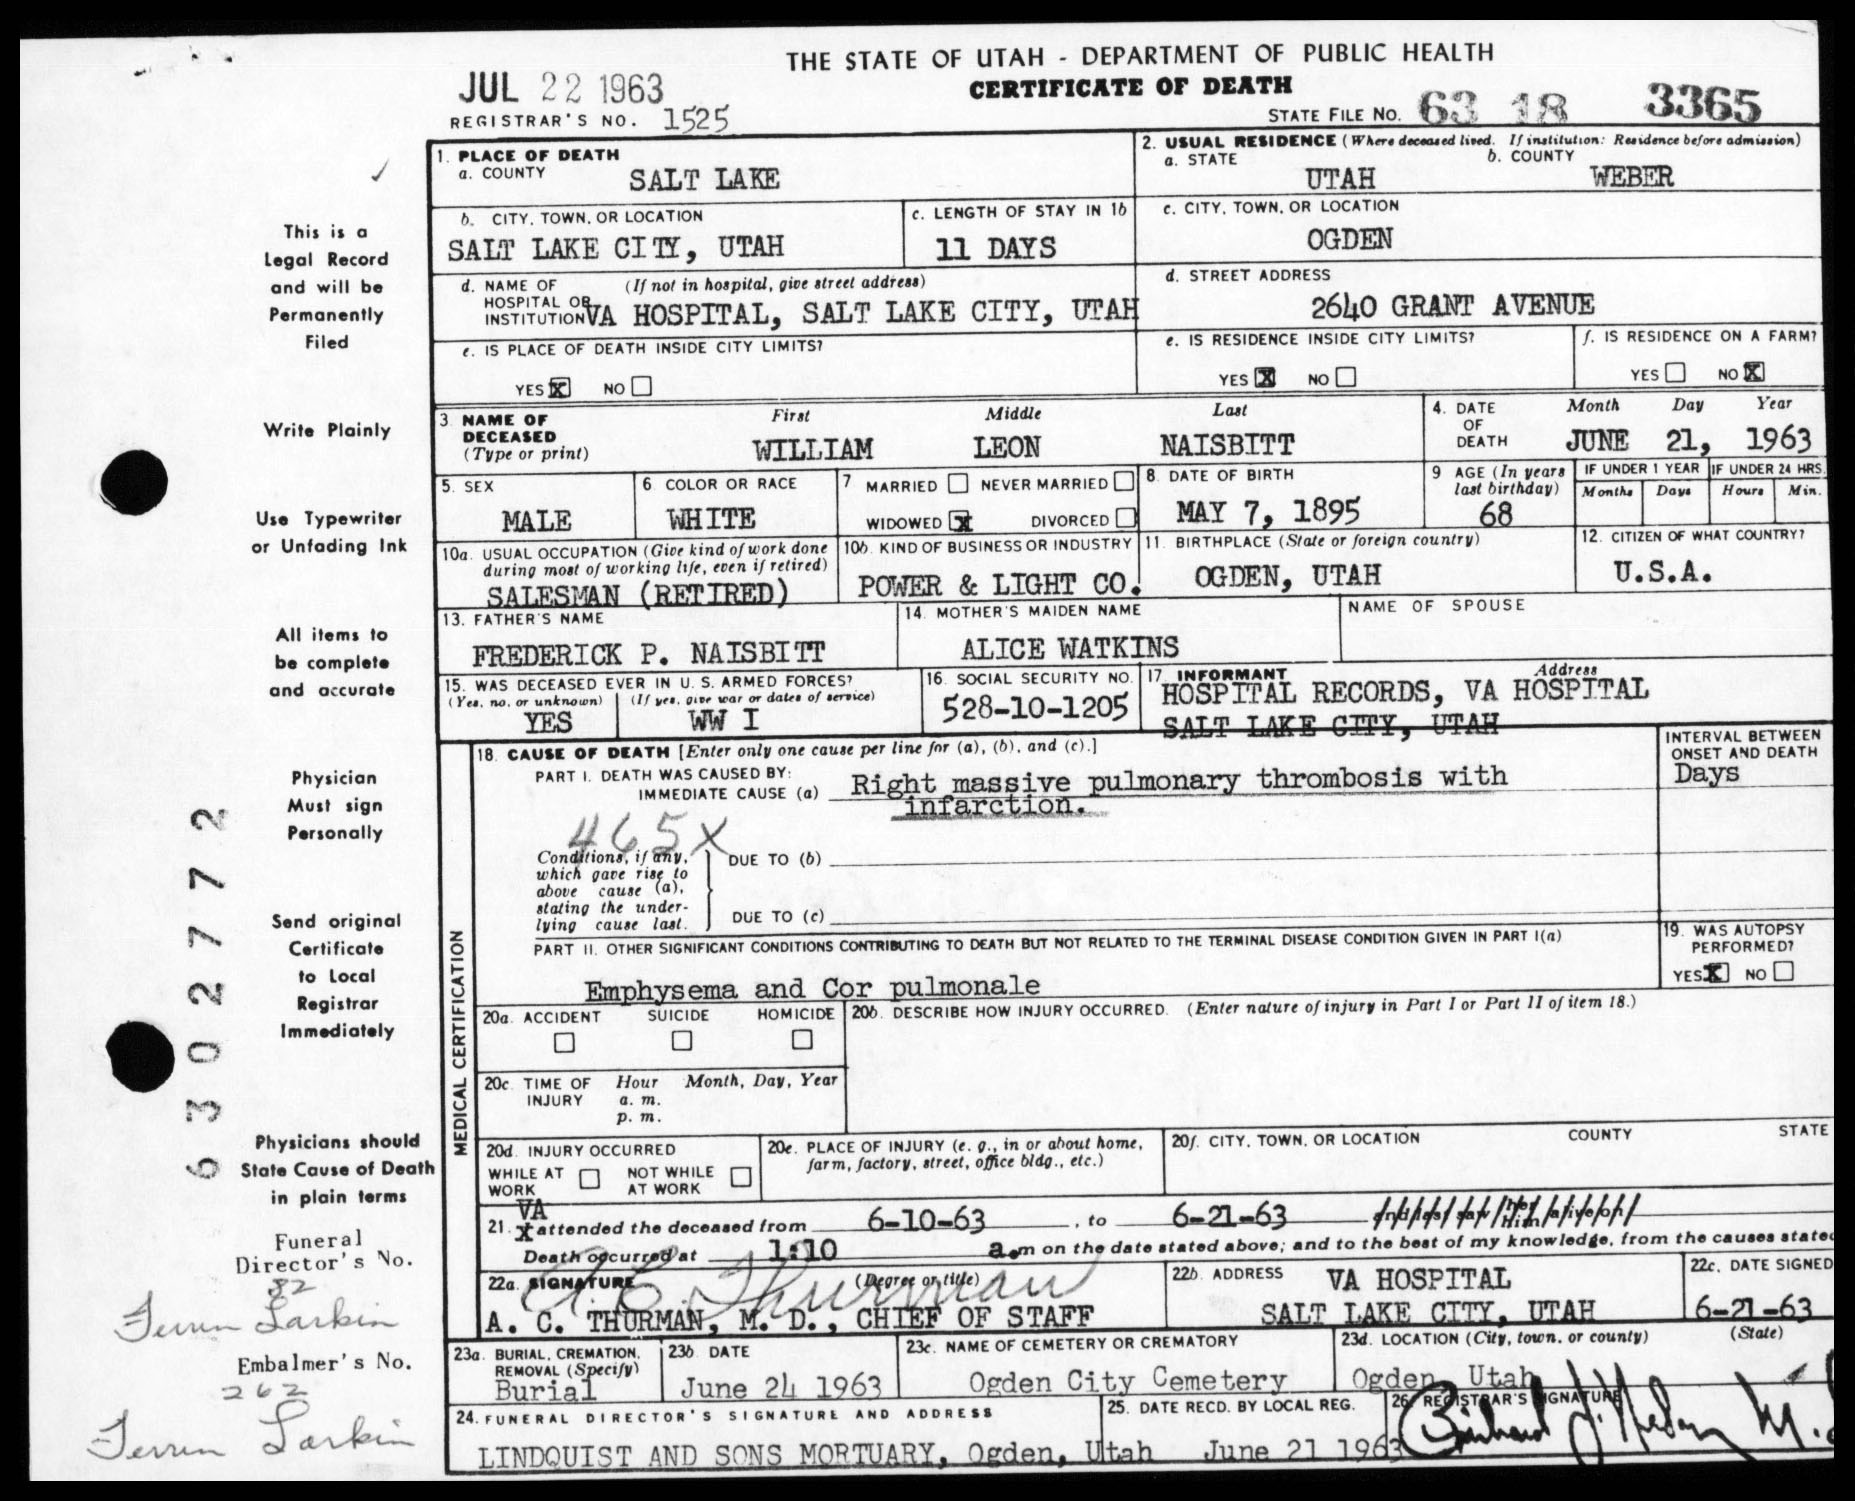 THE STATE OF UTAH - DEPARTMENT OF PUBLIC HEALTH
CERTIFICATE OF DEATH
JUL 22 1963
REGISTRAR'S NO. 1525
STATE FILE NO. 63 18 3365
1. PLACE OF DEATH
a. COUNTY SALT LAKE
2. USUAL RESIDENCE (Where deceased lived. If institution: Residence before admission)
a. STATE UTAH b. COUNTY WEBER
b. CITY, TOWN, OR LOCATION SALT LAKE CITY, UTAH
c. LENGTH OF STAY IN 1b 11 DAYS
c. CITY, TOWN, OR LOCATION OGDEN
d. NAME OF HOSPITAL OR INSTITUTION (If not in hospital, give street address)
VA HOSPITAL, SALT LAKE CITY, UTAH
d. STREET ADDRESS 2640 GRANT AVENUE
e. IS PLACE OF DEATH INSIDE CITY LIMITS?
YES X NO
e. IS RESIDENCE INSIDE CITY LIMITS?
YES X NO
f. IS RESIDENCE ON A FARM?
YES NO X
3. NAME OF DECEASED (Type or print)
First Middle Last
WILLIAM LEON NAISBITT
4. DATE OF DEATH
Month Day Year
JUNE 21, 1963
5. SEX MALE
6. COLOR OR RACE WHITE
7 MARRIED NEVER MARRIED
WIDOWED X DIVORCED
8. DATE OF BIRTH MAY 7, 1895
9 AGE (In years last birthday) 68
IF UNDER 1 YEAR Months Days
IF UNDER 24 HRS. Hours Min.
10a. USUAL OCCUPATION (Give kind of work done during most of working life, even if retired)
SALESMAN (RETIRED)
10b. KIND OF BUSINESS OR INDUSTRY
POWER & LIGHT CO.
11. BIRTHPLACE (State or foreign country)
OGDEN, UTAH
12. CITIZEN OF WHAT COUNTRY?
U.S.A.
13. FATHER'S NAME
FREDERICK P. NAISBITT
14. MOTHER'S MAIDEN NAME
ALICE WATKINS
NAME OF SPOUSE
15. WAS DECEASED EVER IN U. S. ARMED FORCES?
(Yes, no, or unknown) (If yes, give war or dates of service)
YES WW I
16. SOCIAL SECURITY NO.
528-10-1205
17. INFORMANT Address
HOSPITAL RECORDS, VA HOSPITAL
SALT LAKE CITY, UTAH
MEDICAL CERTIFICATION
18. CAUSE OF DEATH [Enter only one cause per line for (a), (b), and (c).]
INTERVAL BETWEEN ONSET AND DEATH
PART I. DEATH WAS CAUSED BY:
IMMEDIATE CAUSE (a) Right massive pulmonary thrombosis with
infarction.
Days
465X
Conditions, if any, which gave rise to above cause (a), stating the underlying cause last.
DUE TO (b)
DUE TO (c)
PART II. OTHER SIGNIFICANT CONDITIONS CONTRIBUTING TO DEATH BUT NOT RELATED TO THE TERMINAL DISEASE CONDITION GIVEN IN PART I(a)
Emphysema and Cor pulmonale
19. WAS AUTOPSY PERFORMED?
YES X NO
20a. ACCIDENT SUICIDE HOMICIDE
20b. DESCRIBE HOW INJURY OCCURRED. (Enter nature of injury in Part I or Part II of item 18.)
20c. TIME OF INJURY Hour Month, Day, Year
a. m.
p. m.
20d. INJURY OCCURRED
WHILE AT WORK NOT WHILE AT WORK
20e. PLACE OF INJURY (e. g., in or about home, farm, factory, street, office bldg., etc.)
20f. CITY, TOWN, OR LOCATION COUNTY STATE
VA
21. X attended the deceased from 6-10-63, to 6-21-63 and last saw her him alive on
Death occurred at 1:10 a.m on the date stated above; and to the best of my knowledge, from the causes stated
22a. SIGNATURE (Degree or title)
A. C. Thurman
A. C. THURMAN, M. D., CHIEF OF STAFF
22b. ADDRESS VA HOSPITAL
SALT LAKE CITY, UTAH
22c. DATE SIGNED
6-21-63
23a. BURIAL, CREMATION, REMOVAL (Specify)
Burial
23b. DATE
June 24 1963
23c. NAME OF CEMETERY OR CREMATORY
Ogden City Cemetery
23d. LOCATION (City, town, or county) (State)
Ogden, Utah
24. FUNERAL DIRECTOR'S SIGNATURE AND ADDRESS
LINDQUIST AND SONS MORTUARY, Ogden, Utah
25. DATE RECD. BY LOCAL REG.
June 21 1963
26. REGISTRAR'S SIGNATURE
This is a
Legal Record
and will be
Permanently
Filed
Write Plainly
Use Typewriter
or Unfading Ink
All items to
be complete
and accurate
Physician
Must sign
Personally
Send original
Certificate
to Local
Registrar
Immediately
Physicians should
State Cause of Death
in plain terms
Funeral
Director's No.
82
Ferrin Larkin
Embalmer's No.
262
Ferrin Larkin
6302772